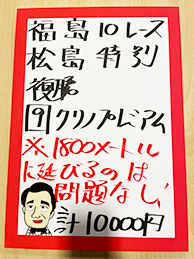 福島10レース
松島特別
複勝
9 クリノプレミアム
※1800メートル
に延びるのは
問題なし!
計10000円